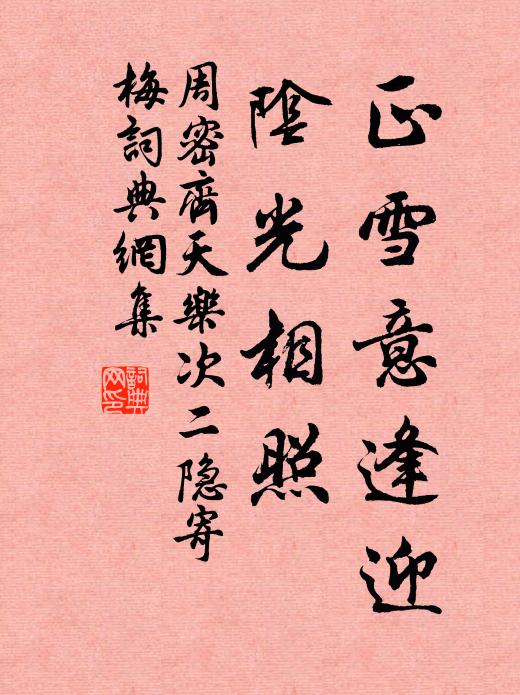 正雪意逢迎
陰光相照
周密齊天樂次二隐寄
梅詞典網集
詞典网印